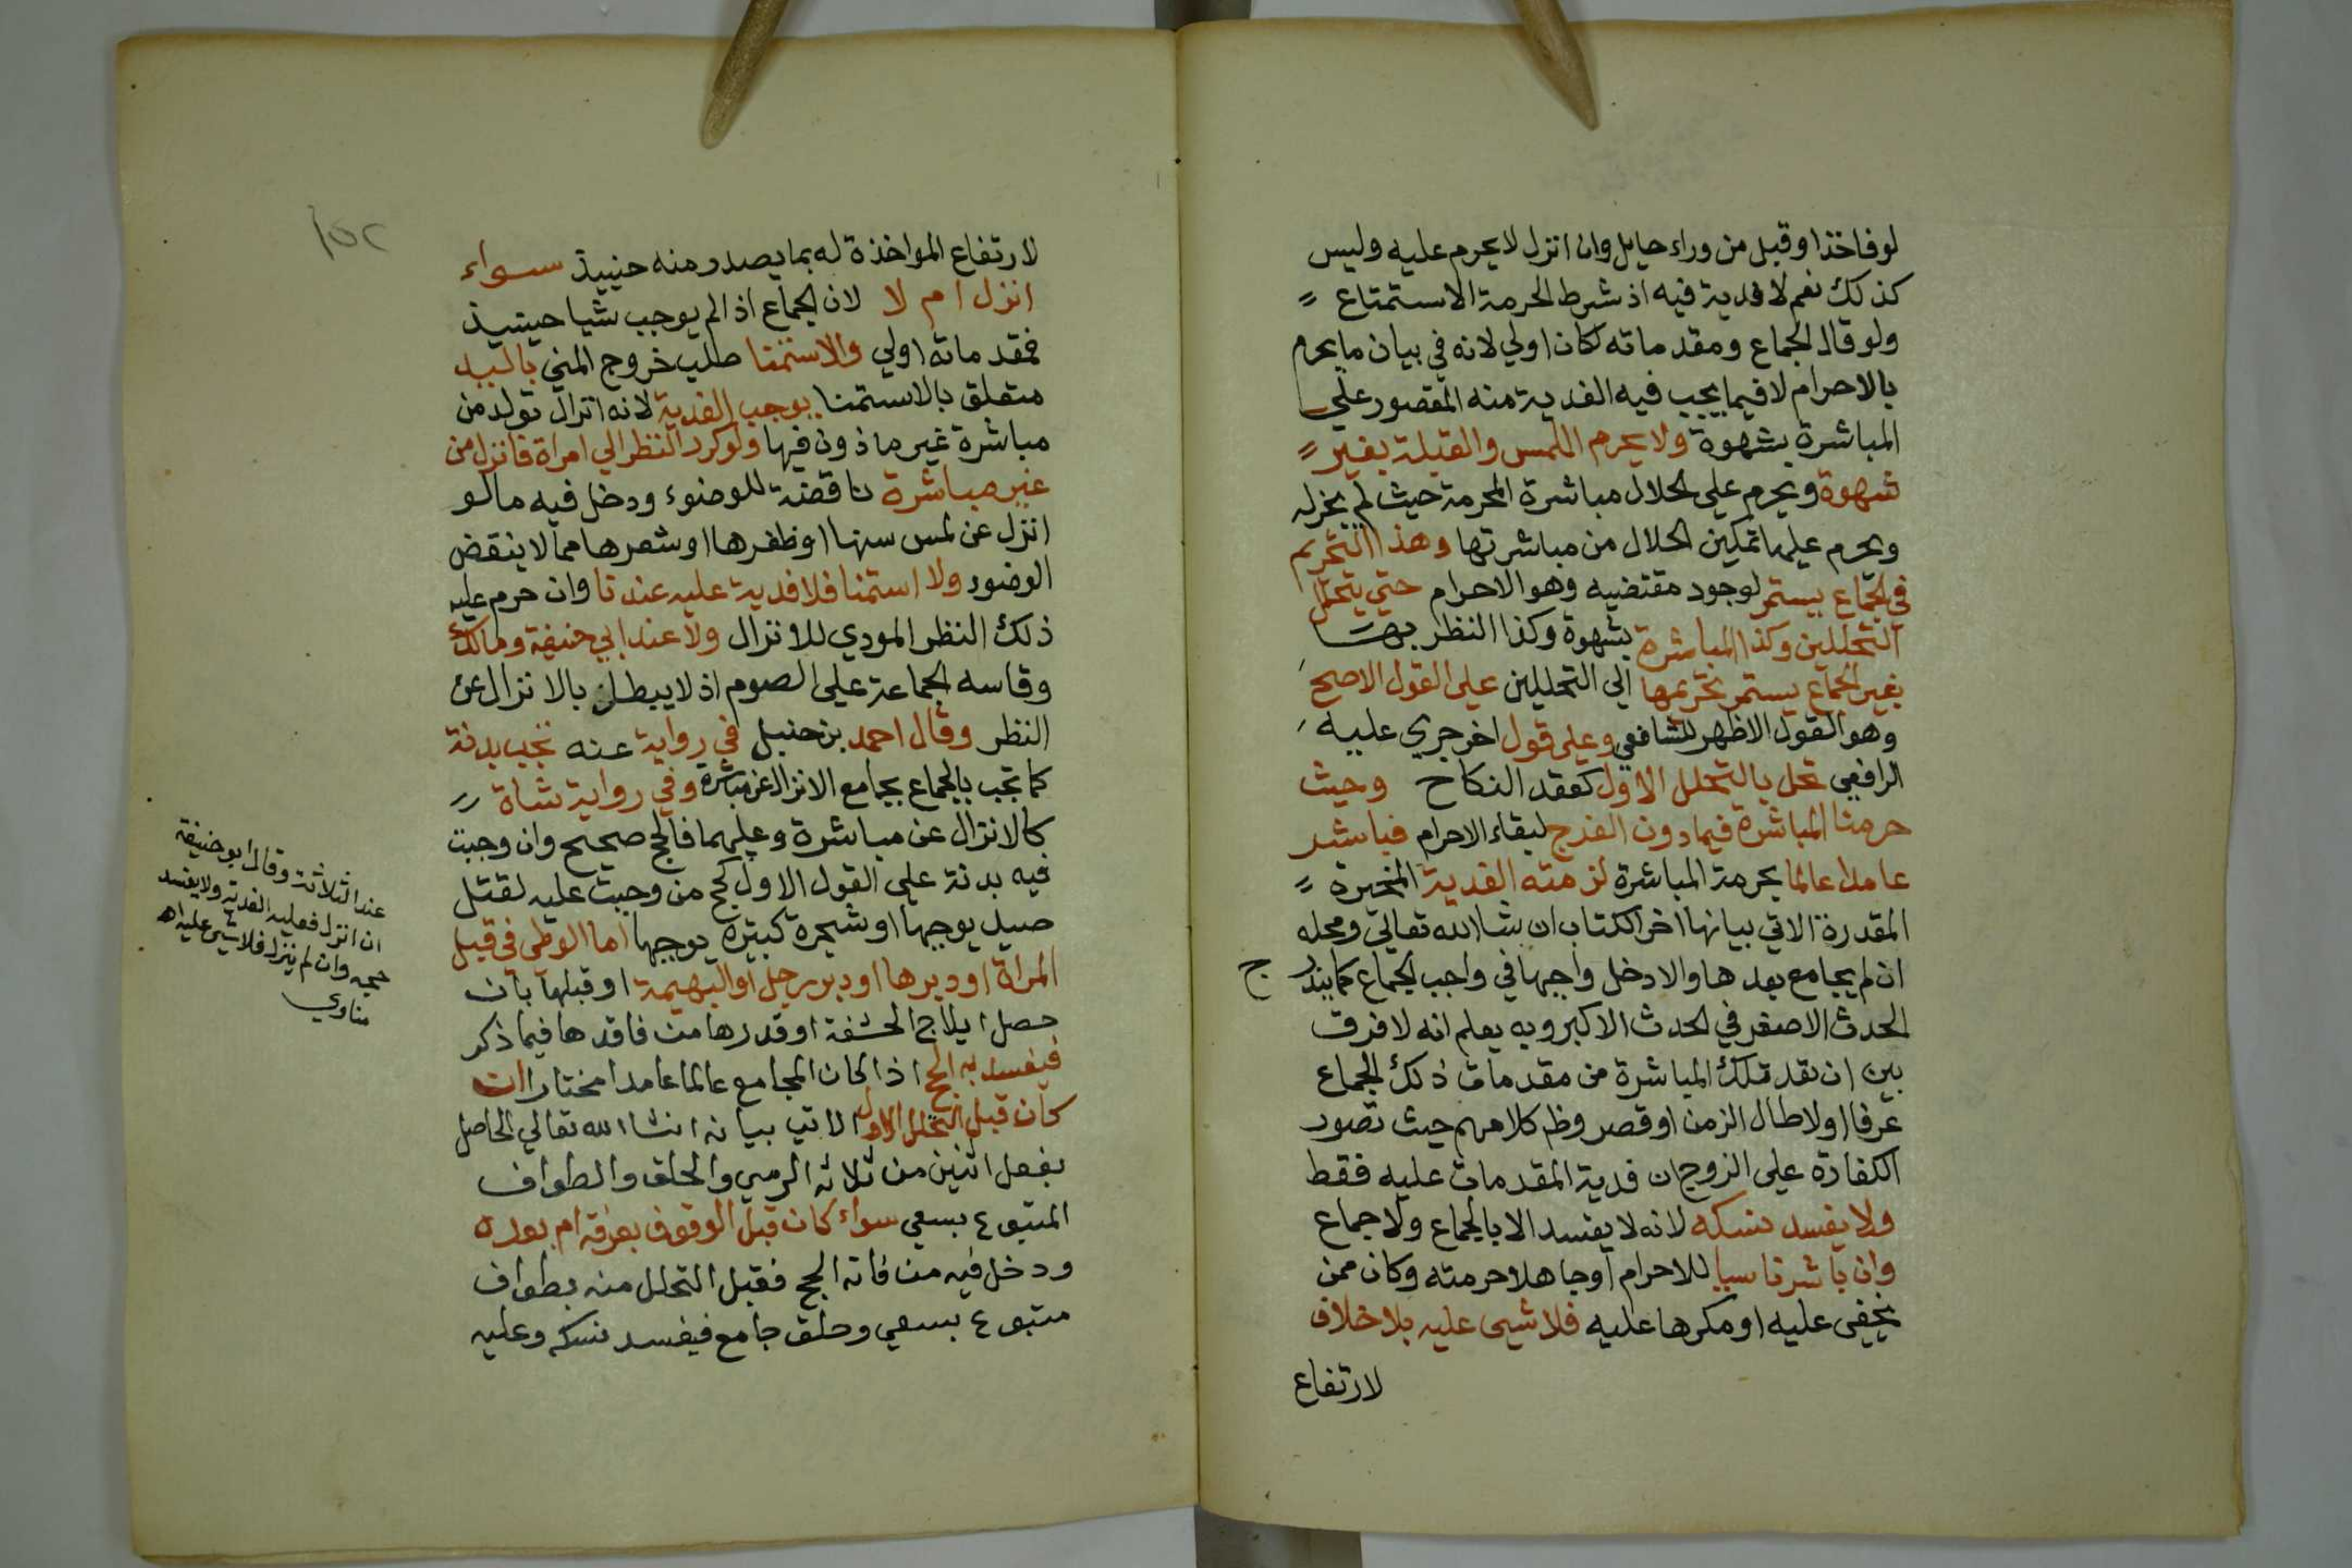 لوفاخذ او قبل من وراء حايل وان انزل لا يحرم عليه وليس
كذلك نعم لا فدية فيه اذ شرط الحرمة الاستمتاع
ولو قال الجماع ومقدماته لكان اولي لانه في بيان ما يحرم
بالاحرام لا فيما يجب فيه الفدية منه المقصور علي
المباشرة بشهوة ولا يحرم اللمس والقبلة بغير
شهوة ويحرم علي الحلال مباشرة المحرمة حيث لم يجز له
ويحرم عليها تمكين الحلال من مباشرتها وهذا التحريم
في الجماع يستمر لوجود مقتضيه وهو الاحرام حتي يتحلل
التحللين وكذا المباشرة بشهوة وكذا النظر بها
بغير الجماع يستمر تحريمها الي التحللين علي القول الاصح
وهو القول الاظهر للشافعي وعلي قول اخر جري عليه
الرافعي تحل بالتحلل الاول كعقد النكاح وحيث
حرمنا المباشرة فيما دون الفرج لبقاء الاحرام فباشر
عامدا عالما بحرمة المباشرة لزمته الفدية المخيرة
المقدرة الاتي بيانها اخر الكتاب ان شا الله تعالي ومحله
ان لم يجامع بعدها والا دخل واجبها في واجب الجماع كما يندرج
الحدث الاصغر في الحدث الاكبر وبه يعلم انه لا فرق
بين ان تعد تلك المباشرة من مقدمات ذلك الجماع
عرفا او لا طال الزمن او قصر وظ كلامهم حيث تصور
الكفارة علي الزوج ان فدية المقدمات عليه فقط
ولا يفسد نسكه لانه لا يفسد الا بالجماع ولا جماع
وان باشر ناسيا للاحرام او جاهلا حرمته وكان ممن
يخفي عليه او مكرها عليه فلا شيى عليه بلا خلاف
لارتفاع
١٥٢
لارتفاع المواخذة له بما يصدر منه حينيذ سواء
انزل ام لا لان الجماع اذا لم يوجب شيا حينيذ
فمقدماته اولي والاستمنا طلب خروج المني باليد
متعلق بالاستمنا يوجب الفدية لانه انزال تولد من
مباشرة غير ماذون فيها ولو كرر النظر الي امراة فانزل من
غير مباشرة ناقضة للوضوء ودخل فيه ما لو
انزل عن لمس سنها او ظفرها او شعرها مما لا ينقض
الوضوء ولا استمنا فلا فدية عليه عندنا وان حرم عليه
ذلك النظر المودي للانزال ولا عند ابي حنيفة ومالك
وقاسه الجماعة علي الصوم اذ لا يبطل بالانزال عن
النظر وقال احمد بن حنبل في رواية عنه تجب بدنة
كما تجب بالجماع بجامع الانزال عن مباشرة وفي رواية شاة
كالانزال عن مباشرة وعليهما فالحج صحيح وان وجبت
فيه بدنة علي القول الاول كحج من وجبت عليه لقتل
صيد يوجبها او شجرة كبيرة يوجبها اما الوطى في قبل
المراة او دبرها او دبر رجل او البهيمة او قبلها بان
حصل ايلاج الحشفة او قدرها من فاقدها فيما ذكر
فيفسد به الحج اذا كان المجامع عالما عامدا مختارا ان
كان قبل التحلل الاول الاتي بيانه انشا الله تعالي الحاصل
بفعل اثنين من ثلاثة الرمي والحلق والطواف
المتبوع بسعي سواء كان قبل الوقوف بعرفة ام بعده
ودخل فيه من فاته الحج فقبل التحلل منه بطواف
متبوع بسعي وحلق جامع فيفسد نسكه وعليه
عند الثلاثة وقال ابو حنيفة
ان انزل فعليه الفدية ولا يفسد
حجه وان لم ينزل فلا شى عليه اهـ
مناوي